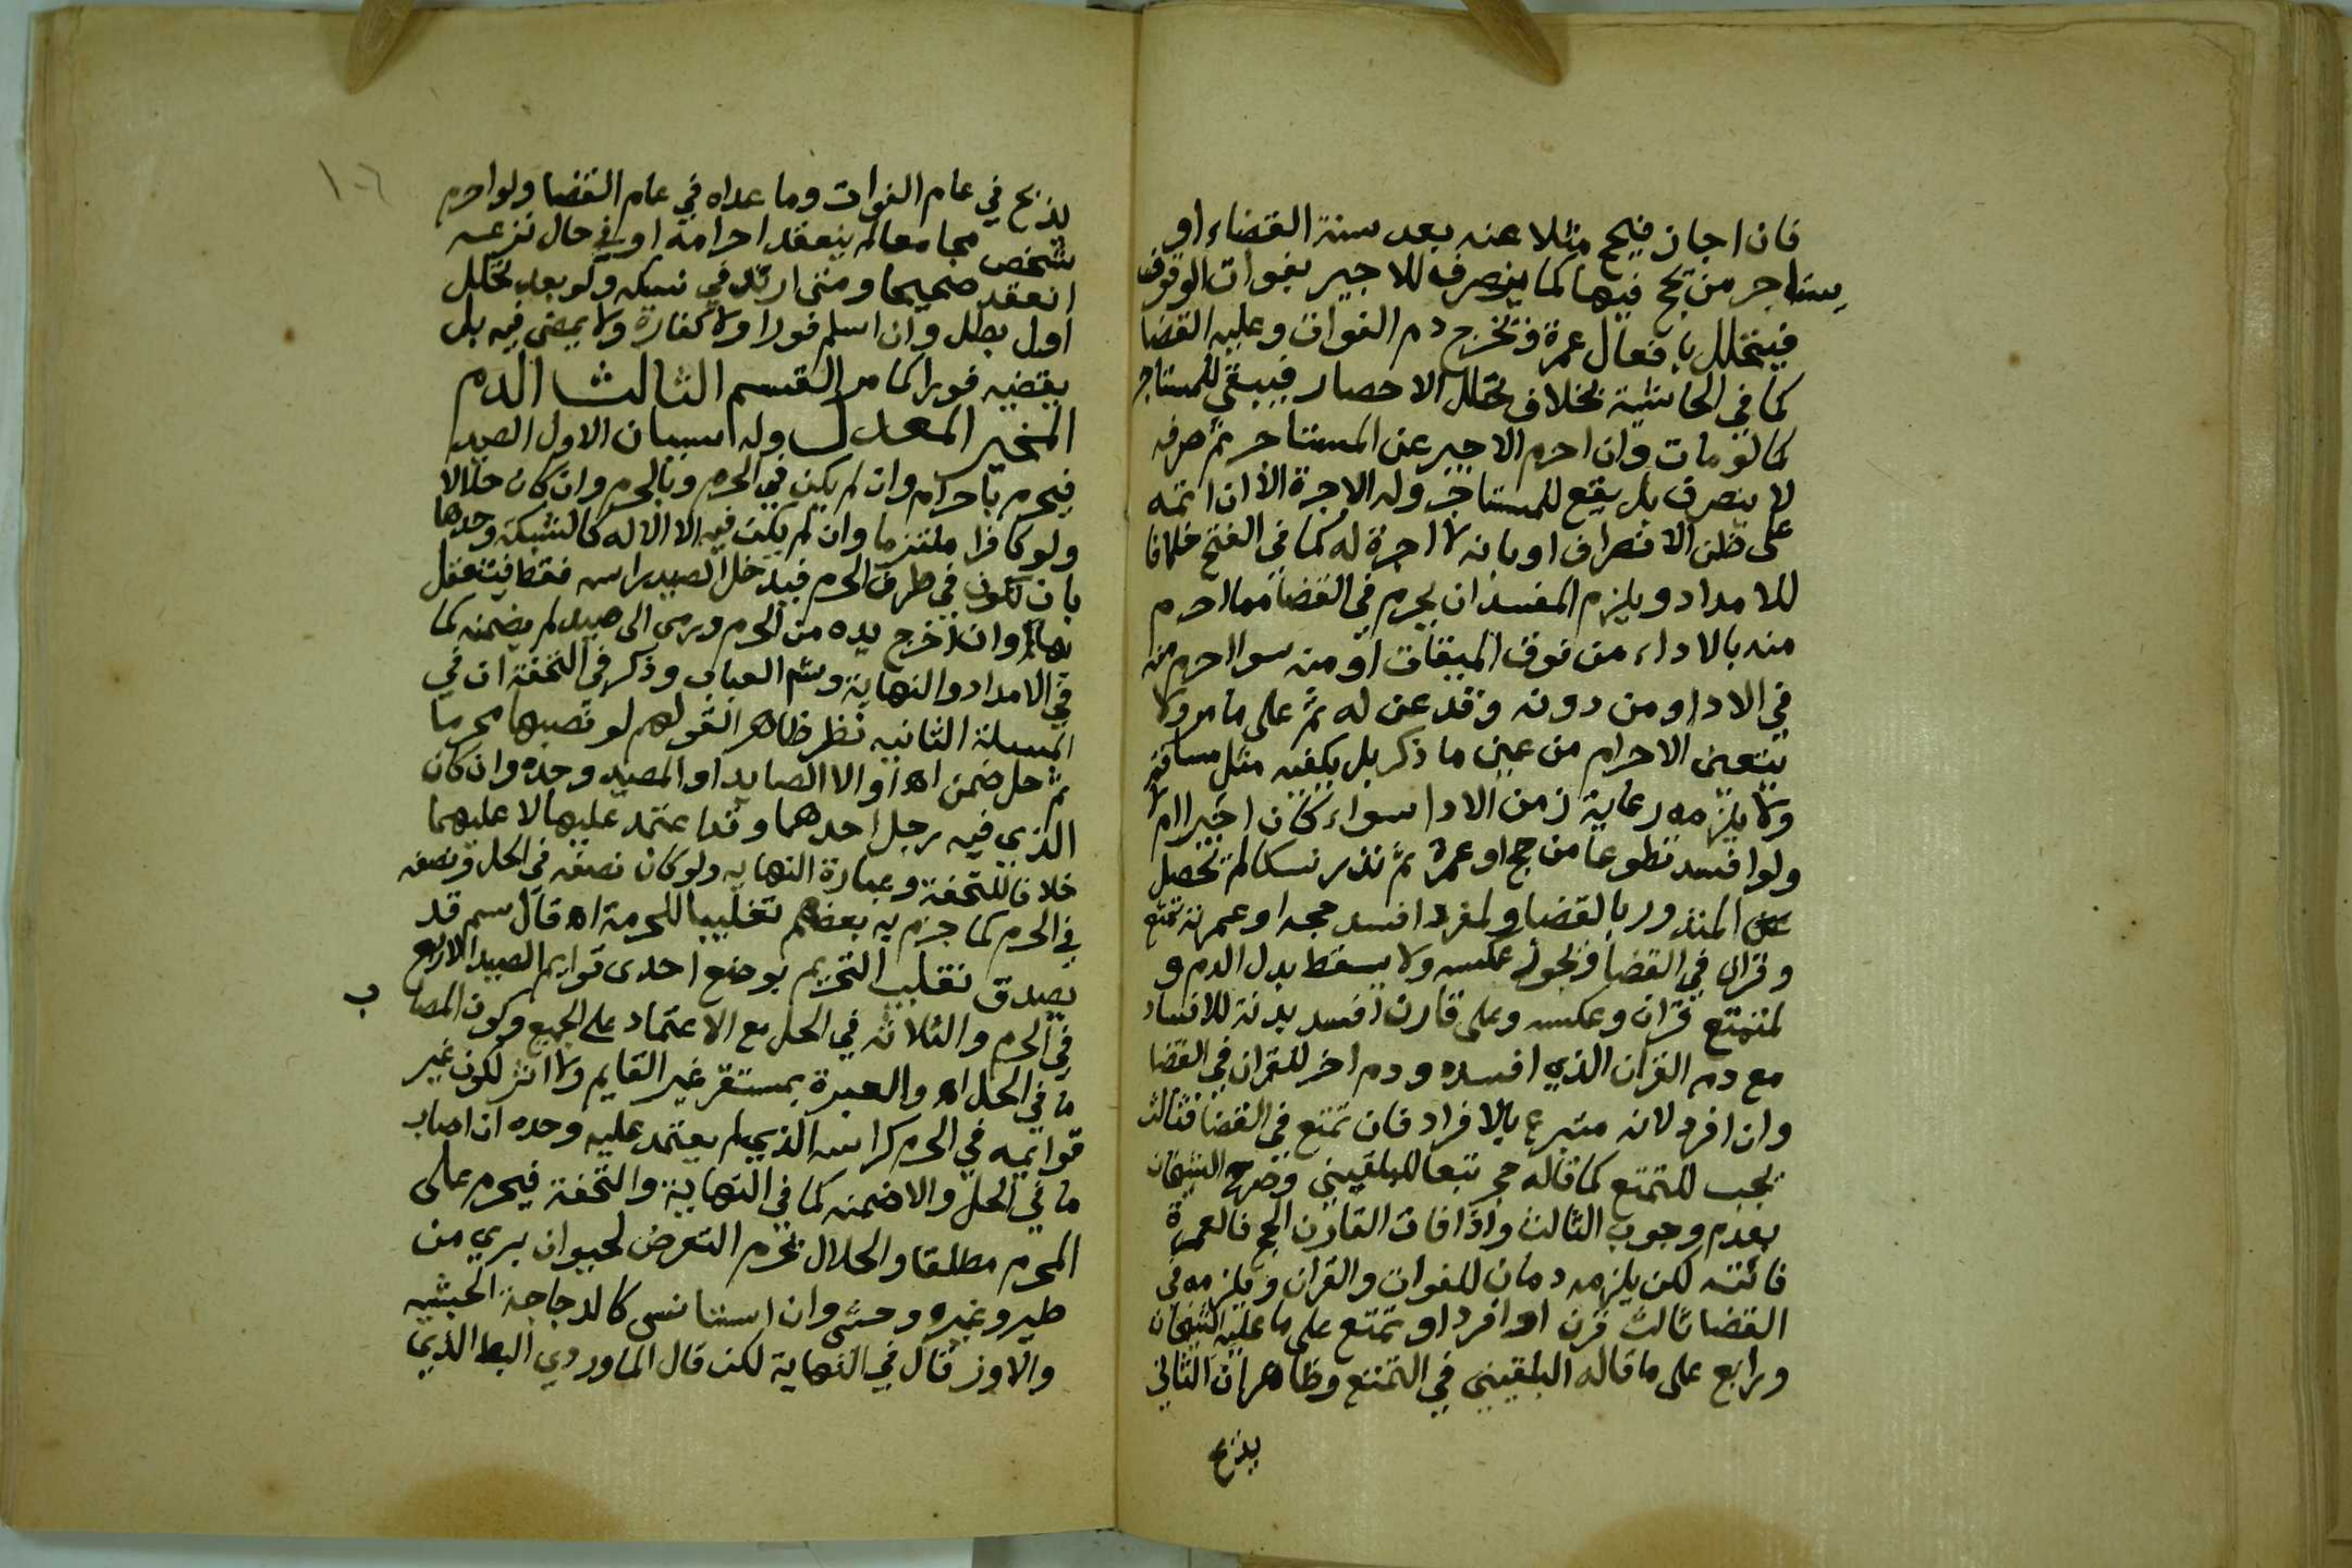 فان اجاز فيحج مثلا عنه بعد سنة القضاء او
يستاجر من يحج فيها كما ينصرف للاجير بفوات الوقوف
فيتحلل بافعال عمرة وتخرج دم الفوات وعليه القضا
كما في الحاشية بخلاف تحلل الاحصار فيبقى للمستاجر
كما لو مات وان احرم الاجير عن المستاجر ثم صرفه
لا ينصرف بل يقع للمستاجر وله الاجرة الا ان اتمه
على ظن الانصراف او بانه لا اجرة له كما في الفتح خلافا
للامداد ويلزم المفسد ان يحرم في القضا مما احرم
منه بالاداء من فوق الميقات او منه سوا احرم منه
في الادا او من دونه وقد عن له ثم على ما مر ولا
يتعين الاحرام من عين ما ذكر بل يكفيه مثل مسافته
ولا يلزمه رعاية زمن الادا سواء كان اجيرا ام لا
ولو افسد تطوعا من حج او عمرة ثم نذر نسكا لم تحصل
المنذور بالقضا ولمفرد افسد حجه او عمرته تمتع
وقران في القضا ونحوه عكسه ولا يسقط بدل الدم و
لمتمتع قران وعكسه وعلى قارن افسد بدنة للافساد
مع دم القران الذي افسده ودم اخر للقران في القضا
وان افرد لانه متبرع بالافراد فان تمتع في القضا فثالث
يجب للتمتع كما قاله حج تبعا للبلقيني وصرح الشيخان
بعدم وجوب الثالث واذا فات القارن الحج فالعمرة
فائتة لكن يلزمه دمان للفوات والقران ويلزمه في
القضا ثالث قرن او افرد او تمتع على ما عليه الشيخان
ورابع على ما قاله البلقيني في التمتع وظاهر ان الثاني
يذبح
١٠٦
يذبح في عام الفوات وما عداه في عام القضا ولو احرم
شخص مجامعا لم ينعقد احرامه او في حال نزعه
انعقد صحيحا ومتى ارتد في نسكه ولو بعد تحلل
اول بطل وان اسلم فورا ولا كفارة ولا يمضي فيه بل
يقضيه فورا كما مر القسم الثالث الدم
المخير المعدل وله اسبان الاول الصيد
فيحرم باحرام وان لم يكن في الحرم وبالحرم وان كان حلالا
ولو كافرا ملتزما وان لم يكن فيه الا الاله كالشبكة وحدها
بان تكون في طرف الحرم فيدخل الصيد راسه فقط فيتعقل
بها وان اخرج يده من الحرم ورمى الى صيد لم يضمنه كما
في الامداد والنهاية وشم العباب وذكر في التحفة ان في
المسلة الثانيه نظر ظاهر القولهم لو نصبها محرما
ثم حل ضمن اه او الا الصايد او المصيد وحده وان كان
الذي فيه رجل احدهما وقد اعتمد عليها لا عليهما
خلافا للتحفة وعبارة النهايه ولو كان نصفه في الحل ونصفه
في الحرم كما جزم به بعضهم تغليبا للحرمة اه قال سم قد
يصدق تغليب التحريم بوضع احدى قوايم الصيد الاربع
في الحرم والثلاثه في الحل مع الاعتماد على الجميع وكون المصاب
ما في الحل اه والعبرة بمستقر غير القايم ولا اثر لكون غير
قوايمه في الحرم كراسه الذي لم يعتمد عليه وحده ان اصاب
ما في الحل والا ضمنه كما في النهاية والتحفة فيحرم على
المحرم مطلقا والحلال بحرم التعرض لحيوان بري من
طير وغيره وحشي وان استانس كالدجاجة الحبشيه
والاوز قال في النهاية لكن قال الماوردي البط الذي